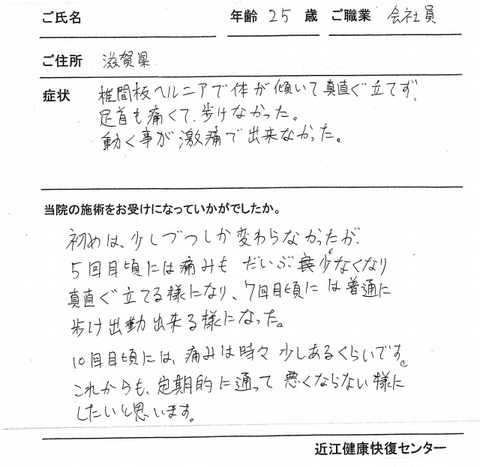 ご氏名 年齢 25 歳 ご職業 会社員
ご住所 滋賀県
症状 椎間板ヘルニアで体が傾いて真直ぐ立てず、
足首も痛くて、歩けなかった。
動く事が激痛で出来なかった。
当院の施術をお受けになっていかがでしたか。
初めは、少しづつしか変わらなかったが、
5回目頃には痛みも だいぶ 少なくなり
真直ぐ立てる様になり、7回目頃には普通に
歩け出動出来る様になった。
10回目頃には、痛みは時々少しあるくらいです。
これからも、定期的に通って 悪くならない様に
したいと思います。
近江健康快復センター